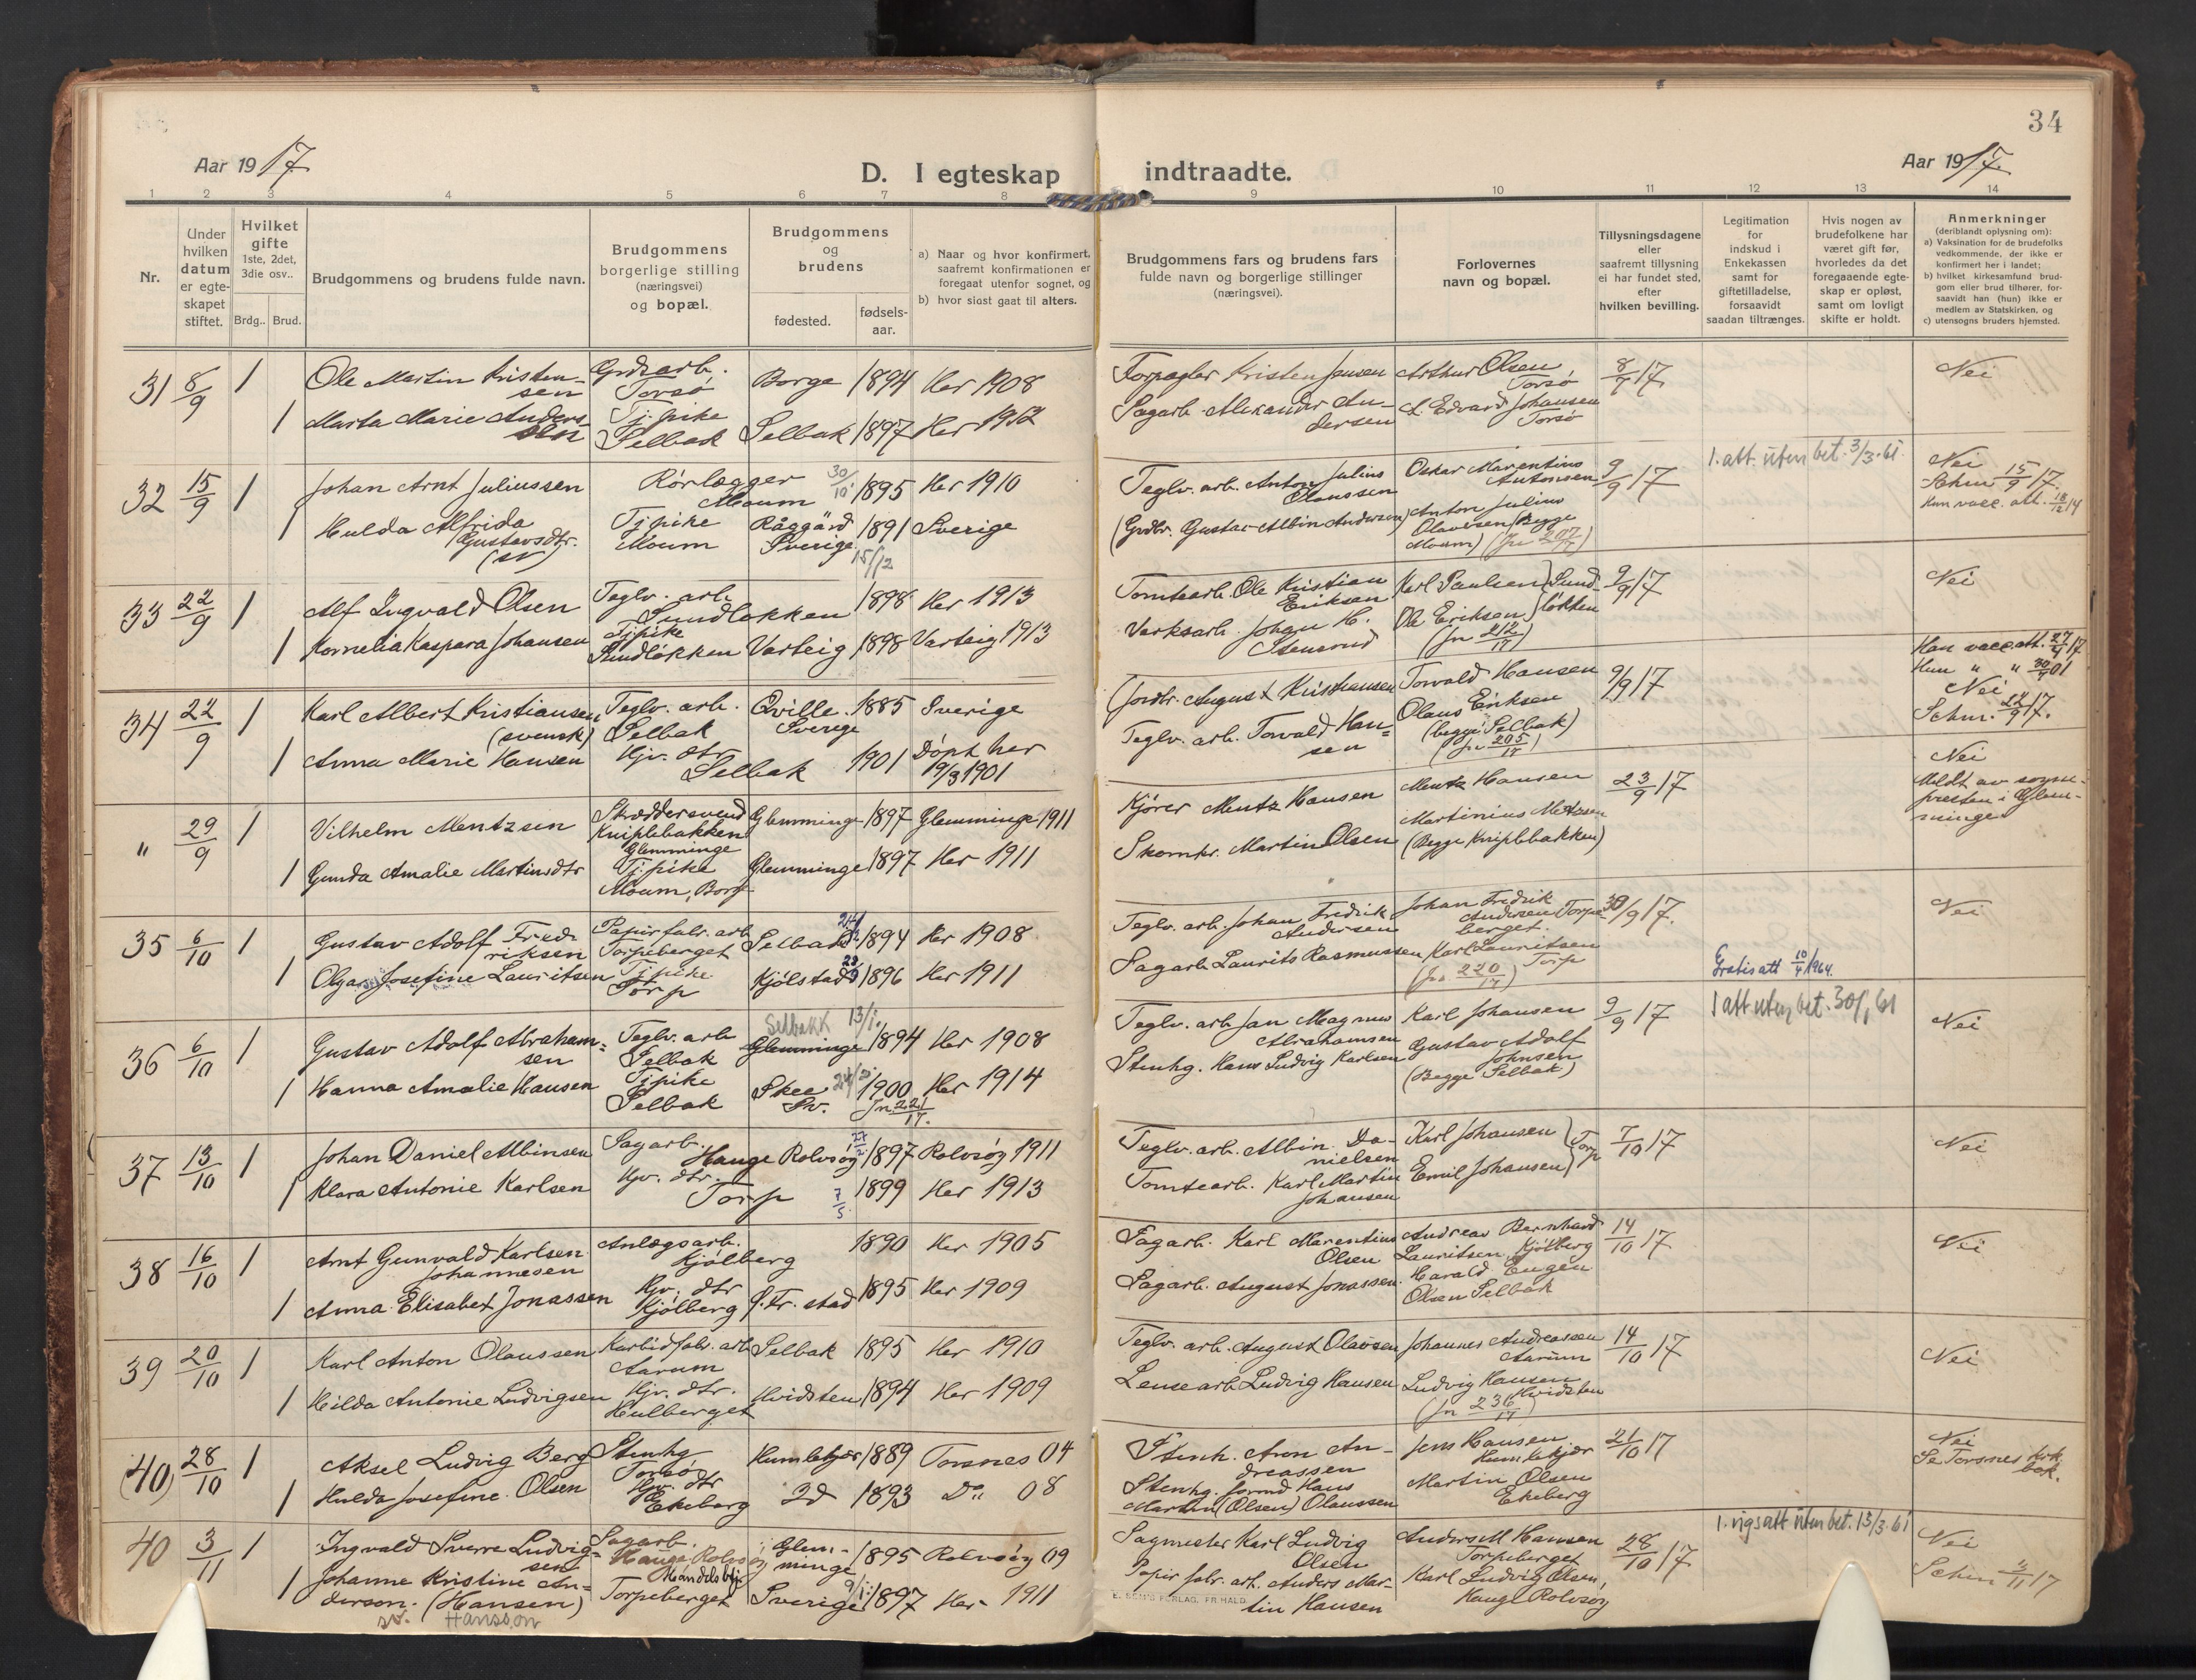 34
Aar 1917.
D. I egteskap indtraadte.
Aar 1917.
1 2 3 4 5 6 7 8 9 10 11 12 13 14
Nr.
Under hvilken datum er egteskapet stiftet.
Hvilket gifte 1ste, 2det, 3die osv..
Brdg.. Brud.
Brudgommens og brudens fulde navn.
Brudgommens borgerlige stilling (næringsvei) og bopæl.
Brudgommens og brudens
fødested.
fødsels-aar.
a) Naar og hvor konfirmert, saafremt konfirmationen er foregaat utenfor sognet, og
b) hvor sidst gaat til alters.
Brudgommens fars og brudens fars fulde navn og borgerlige stillinger (næringsvei).
Forlovernes navn og bopæl.
Tillysningsdagene eller saafremt tillysning ei har fundet sted, efter hvilken bevilling.
Legitimation for indskud i Enkekassen samt for giftetilladelse, forsaavidt saadan tiltrænges.
Hvis nogen av brudefolkene har været gift før, hvorledes da det foregaaende egteskap er opløst, samt om lovligt skifte er holdt.
Anmerkninger (deriblandt oplysning om):
a) Vaksination for de brudefolks vedkommende, der ikke er konfirmert her i landet;
b) hvilket kirkesamfund brudgom eller brud tilhører, forsaavidt han (hun) ikke er medlem av Statskirken, og
c) utensogns bruders hjemsted.
31 8/9 1 Ole Martin Kristensen Grdsarb. Torsø Borge 1894 Her 1908 Forpagter Kristen Jensen Arthur Olsen Torsø 8/7 17 Nei
1 Marta Marie Anderssen Tj.pike Selbak Selbak 1897 Her 1912 Sagarb. Alexander Andersen L. Edvard Johansen Torsø
32 15/9 1 Johan Arnt Juliussen Rørlægger Moum 30/10 1895 Her 1910 Teglv. arb. Anton Julius Olaussen Oskar Marentius Antonsen 9/9 17 1. att. uten bet. 3/3.61 Nei Schw 15/9 17.
1 Hulda Alfrida Gustavsdtr. (sv) Tj.pike Moum Råggärd Sverige 15/12 1891 Sverige (Grdbr. Gustav Albin Andersen) Anton Julius Olaussen (Begge Moum) (Jn 207/17) Hun vacc. att. 18/12 14
33 22/9 1 Alf Ingvald Olsen Teglv. arb. Sundløkken 1898 Her 1913 Tomtearb. Ole Kristian Eriksen Karl Paulsen 9/9 17 Nei
1 Kornelia Kaspara Johansen Tj.pike Sundløkken Varteig 1898 Varteig 1913 Verksarb. Johan H. Stensrud Ole Eriksen } Sundløkken (Jn 212/17)
34 22/9 1 Karl Albert Kristiansen (svensk) Teglv. arb. Selbak Qville Sverige 1885 Sverige (Jordbr. August Kristiansen Torvald Hansen 9/9 17 Han vacc. att. 27/4 17 Hun " " 30/9 01 Nei Schw. 22/9 17.
1 Anna Marie Hansen Hjv. dtr Selbak 1901 Døpt her 19/3 1901 Teglv. arb. Torvald Hansen Olaus Eriksen (begge Selbak) (Jn 205/17)
" 29/9 1 Vilhelm Mentzsen Skræddersvend Kniplebakken Glemminge Glemminge 1897 Glemminge 1911 Kjører Mentz Hansen Mentz Hansen 23/9 17 Nei Meldt av sognepresten i Glemminge
1 Gunda Amalie Martinsdtr Tj.pike Moum, Borge Glemminge 1897 Her 1911 Skomkr. Martin Olsen Martinius Mentzsen (Begge Kniplebakken)
35 6/10 1 Gustav Adolf Fredriksen Papirfabr. arb Torpeberget Selbak 1894 Her 1908 Teglv. arb. Johan Fredrik Andersen Johan Fredrik Andersen Torpeberget. 30/9 17. Nei
1 Olga Josefine Lauritsen Tj.pike Torp Kjølstad 1896 Her 1911 Sagarb. Laurits Rasmussen Karl Lauritsen Torp (Jn 220/17) Gratis att 10/4 1964.
36 6/10 1 Gustav Adolf Abrahamsen Teglv. arb Selbak Selbakk 13/1. Glemminge 1894 Her 1908 Teglv. arb Jan Magnus Abrahamsen Karl Johansen 9/9 17 1 att uten bet. 30/1 61 Nei
1 Hanna Amalie Hansen Tj.pike Selbak Skee Sv. 1900 Her 1914 Jn 221/17. Stenhg. Hans Ludvig Karlsen Gustav Adolf Johnsen (Begge Selbak)
37 13/10 1 Johan Daniel Albinsen Sagarb. Hauge Rolvsøy 1897 Rolvsøy 1911 Teglv. arb. Albin Danielsen Karl Johansen 7/10 17 Nei
1 Klara Antonie Karlsen Hjv. dtr. Torp 7/5 1899 Her 1913 Tomtearb. Karl Martin Johansen Emil Johansen } Torp
38 16/10 1 Arnt Gunvald Karlsen Johannesen Anlægsarb. Kjølberg 1890 Her 1905 Sagarb. Karl Marentius Olsen Andreas Bernhard Lauritsen, Kjølberg 14/10 17 Nei
1 Anna Elisabet Jonassen Hjv. dtr Kjølberg Fr. stad 1895 Her 1909 Sagarb. August Jonassen. Harald Eugen Olsen Selbak
39 20/10 1 Karl Anton Olaussen Karbidfabr. arb Aarum Selbak 1895 Her 1910 Teglv. arb. August Olaussen Johannes Andreassen Aarum 14/10 17 Nei
1 Hilda Antonie Ludvigsen Hjv. dtr. Hulberget Hvidsten 1894 Her 1909 Lensearb Ludvig Hansen Ludvig Hansen Hvidsten (Jn 236/17)
(40) 28/10 1 Aksel Ludvig Berg Stenhg Torsø Humlekjær 1889 Torsnes 04 Stenh. Aron Andreassen Jens Hansen Humlekjær 21/10 17 Nei Se Torsnes kirkbok.
1 Hulda Josefine Olsen Hjv. dtr Ekeberg Do 1893 Do 08 Stenhg. Formd Hans Martin (Olsen) Olaussen Martin Olsen Ekeberg
40 3/11 1 Ingvald Sverre Ludvigsen Sagarb. Hauge Rolvsøy Glemminge 1895 Rolvsøy 09 Sagmester Karl Ludvig Olsen Anders M. Hansen Torpeberget 28/10 17 1. vigsatt uten bet. 13/3.61 Nei
1 Johanne Kristine Anderson. (Hansen) Handelsbtj. Torpeberget Sverige 9/1: 1897 Her 1911 Papir fabr. arb. Anders Martin Hansen Karl Ludvig Olsen, Hauge Rolvsøy Schw 3/11 17
sv. Hansson
E. SEM'S FORLAG, FR.HALD